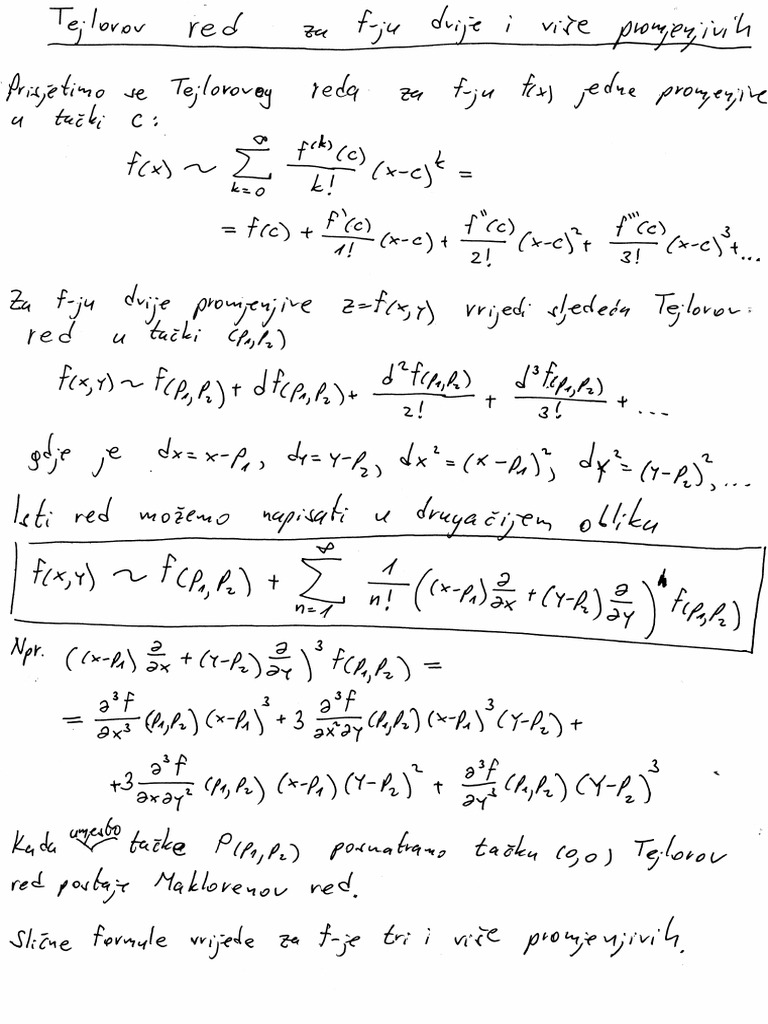 Tejlorov red za f-ju dvije i više promjenjivih
Prisjetimo se Tejlorovog reda za f-ju f(x) jedne promjenjive
u tački c:
f(x) ~ ∑_{k=0}^{∞} f^{(k)}(c)/k! (x-c)^k =
= f(c) + f'(c)/1! (x-c) + f''(c)/2! (x-c)^2 + f'''(c)/3! (x-c)^3 + ...
Za f-ju dvije promjenjive z=f(x,y) vrijedi sljedeći Tejlorov
red u tački (p₁,p₂)
f(x,y) ~ f(p₁,p₂) + df(p₁,p₂) + d²f(p₁,p₂)/2! + d³f(p₁,p₂)/3! + ...
gdje je dx=x-p₁, dy=y-p₂, dx²=(x-p₁)², dy²=(y-p₂)², ...
Isti red možemo napisati u drugačijem obliku
f(x,y) ~ f(p₁,p₂) + ∑_{n=1}^{∞} 1/n! ((x-p₁) ∂/∂x + (y-p₂) ∂/∂y)^n f(p₁,p₂)
Npr. ((x-p₁) ∂/∂x + (y-p₂) ∂/∂y)^3 f(p₁,p₂) =
= ∂³f/∂x³ (p₁,p₂) (x-p₁)^3 + 3 ∂³f/∂x²∂y (p₁,p₂) (x-p₁)^3 (y-p₂) +
+3 ∂³f/∂x∂y² (p₁,p₂) (x-p₁) (y-p₂)^2 + ∂³f/∂y³ (p₁,p₂) (y-p₂)^3
Kada umjesto tačke P(p₁,p₂) posmatramo tačku (0,0) Tejlorov
red postaje Maklorenov red.
Slične formule vrijede za f-je tri i više promjenjivih.